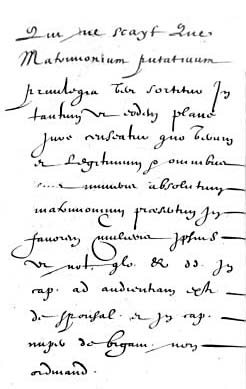 Qui ne scayt Que
Matrimonium putativum
privilegia sortitur In
tantum ut eodem plane
Jure censeatur quo verum
et Legitimum omnibus
numeris absolutum
matrimonium presertim In
favorem mulieris ipsius
ut not. glo. & dd. in
cap. ad audientiam extr.
de sponsal. et in cap.
nuper de bigam. non
ordinand.